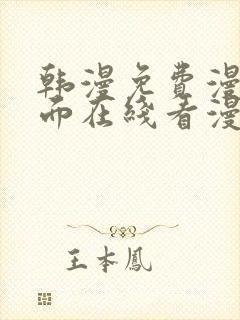 韩漫免费漫
面在线看漫
王本凤